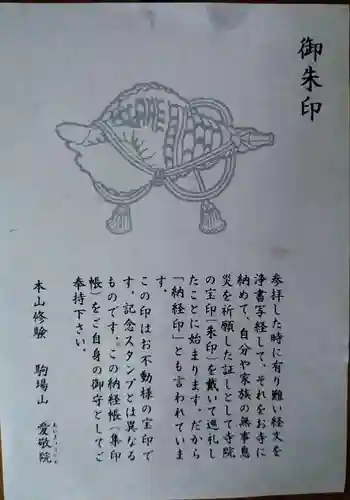 御朱印
参拝した時に有り難い経文を
浄書写経して、それをお寺に
納めて、自分や家族の無事息
災を祈願した証しとして寺院
の宝印（朱印）を戴いて巡礼し
たことに始まります。だから
「納経印」とも言われていま
す。
この印はお不動様の宝印で
す。記念スタンプとは異なる
ものです。この納経帳（集印
帳）をご自身の御守としてご
奉持下さい。
本山修験　駒場山　愛敬院